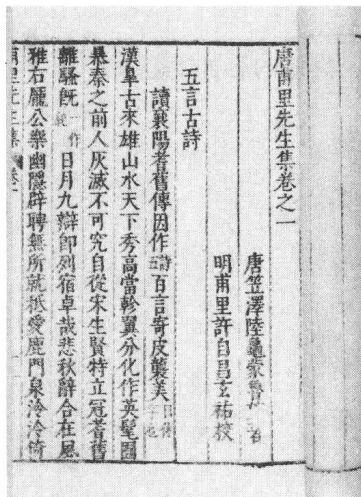 唐甫里先生集卷之一
唐笠澤陸龜蒙魯望著
明甫里許自昌玄祐校
五言古詩
讀襄陽耆舊傳因作詩五百言寄皮襲美
漢皐古來雄山水天下秀高當軫翼分化作英髦囿
暴秦之前人灰滅不可究自從宋生賢特立冠耆舊
離騷旣一作日月九辯卽列宿卓哉悲秋辭合在風
雅右龐公樂幽隱辟聘無所就秪愛鹿門泉泠泠倚
甫里先生集 卷一